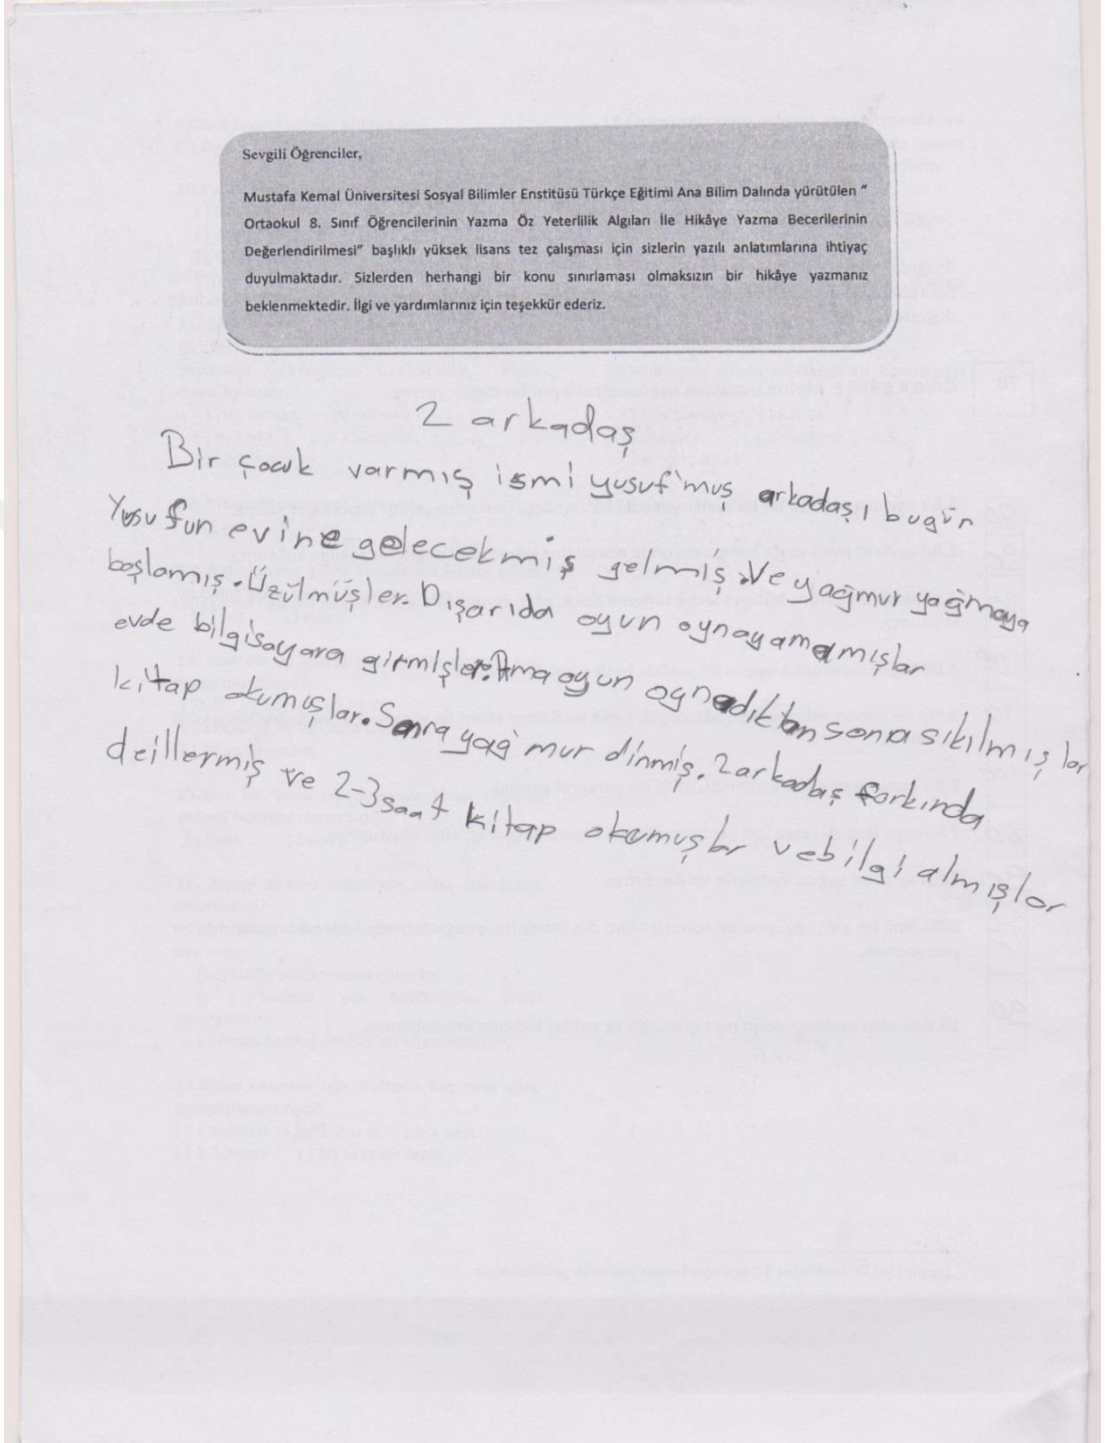 Sevgili Öğrenciler,
Mustafa Kemal Üniversitesi Sosyal Bilimler Enstitüsü Türkçe Eğitimi Ana Bilim Dalında yürütülen "
Ortaokul 8. Sınıf Öğrencilerinin Yazma Öz Yeterlilik Algıları İle Hikâye Yazma Becerilerinin
Değerlendirilmesi" başlıklı yüksek lisans tez çalışması için sizlerin yazılı anlatımlarına ihtiyaç
duyulmaktadır. Sizlerden herhangi bir konu sınırlaması olmaksızın bir hikâye yazmanız
beklenmektedir. İlgi ve yardımlarınız için teşekkür ederiz.
2 arkadaş
Bir çocuk varmış ismi yusuf'muş arkadaşı bugün
Yusufun evine gelecekmiş gelmiş. Ve yağmur yağmaya
başlamış. Üzülmüşler. Dışarıda oyun oynayamamışlar
evde bilgisayara girmişler. Ama oyun oynadıktan sonra sıkılmışlar
kitap okumuşlar. Sonra yağmur dinmiş. 2 arkadaş farkında
deillermiş ve 2-3 saat kitap okumuşlar ve bilgi almışlar